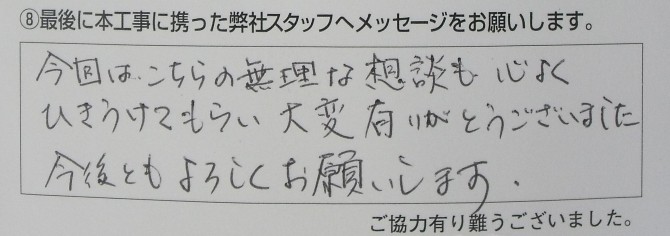 ⑧最後に本工事に携った弊社スタッフへメッセージをお願いします。
今回は、こちらの無理な想談も心よく
ひきうけてもらい大変有りがとうございました
今後ともよろしくお願いします.
ご協力有り難うございました。